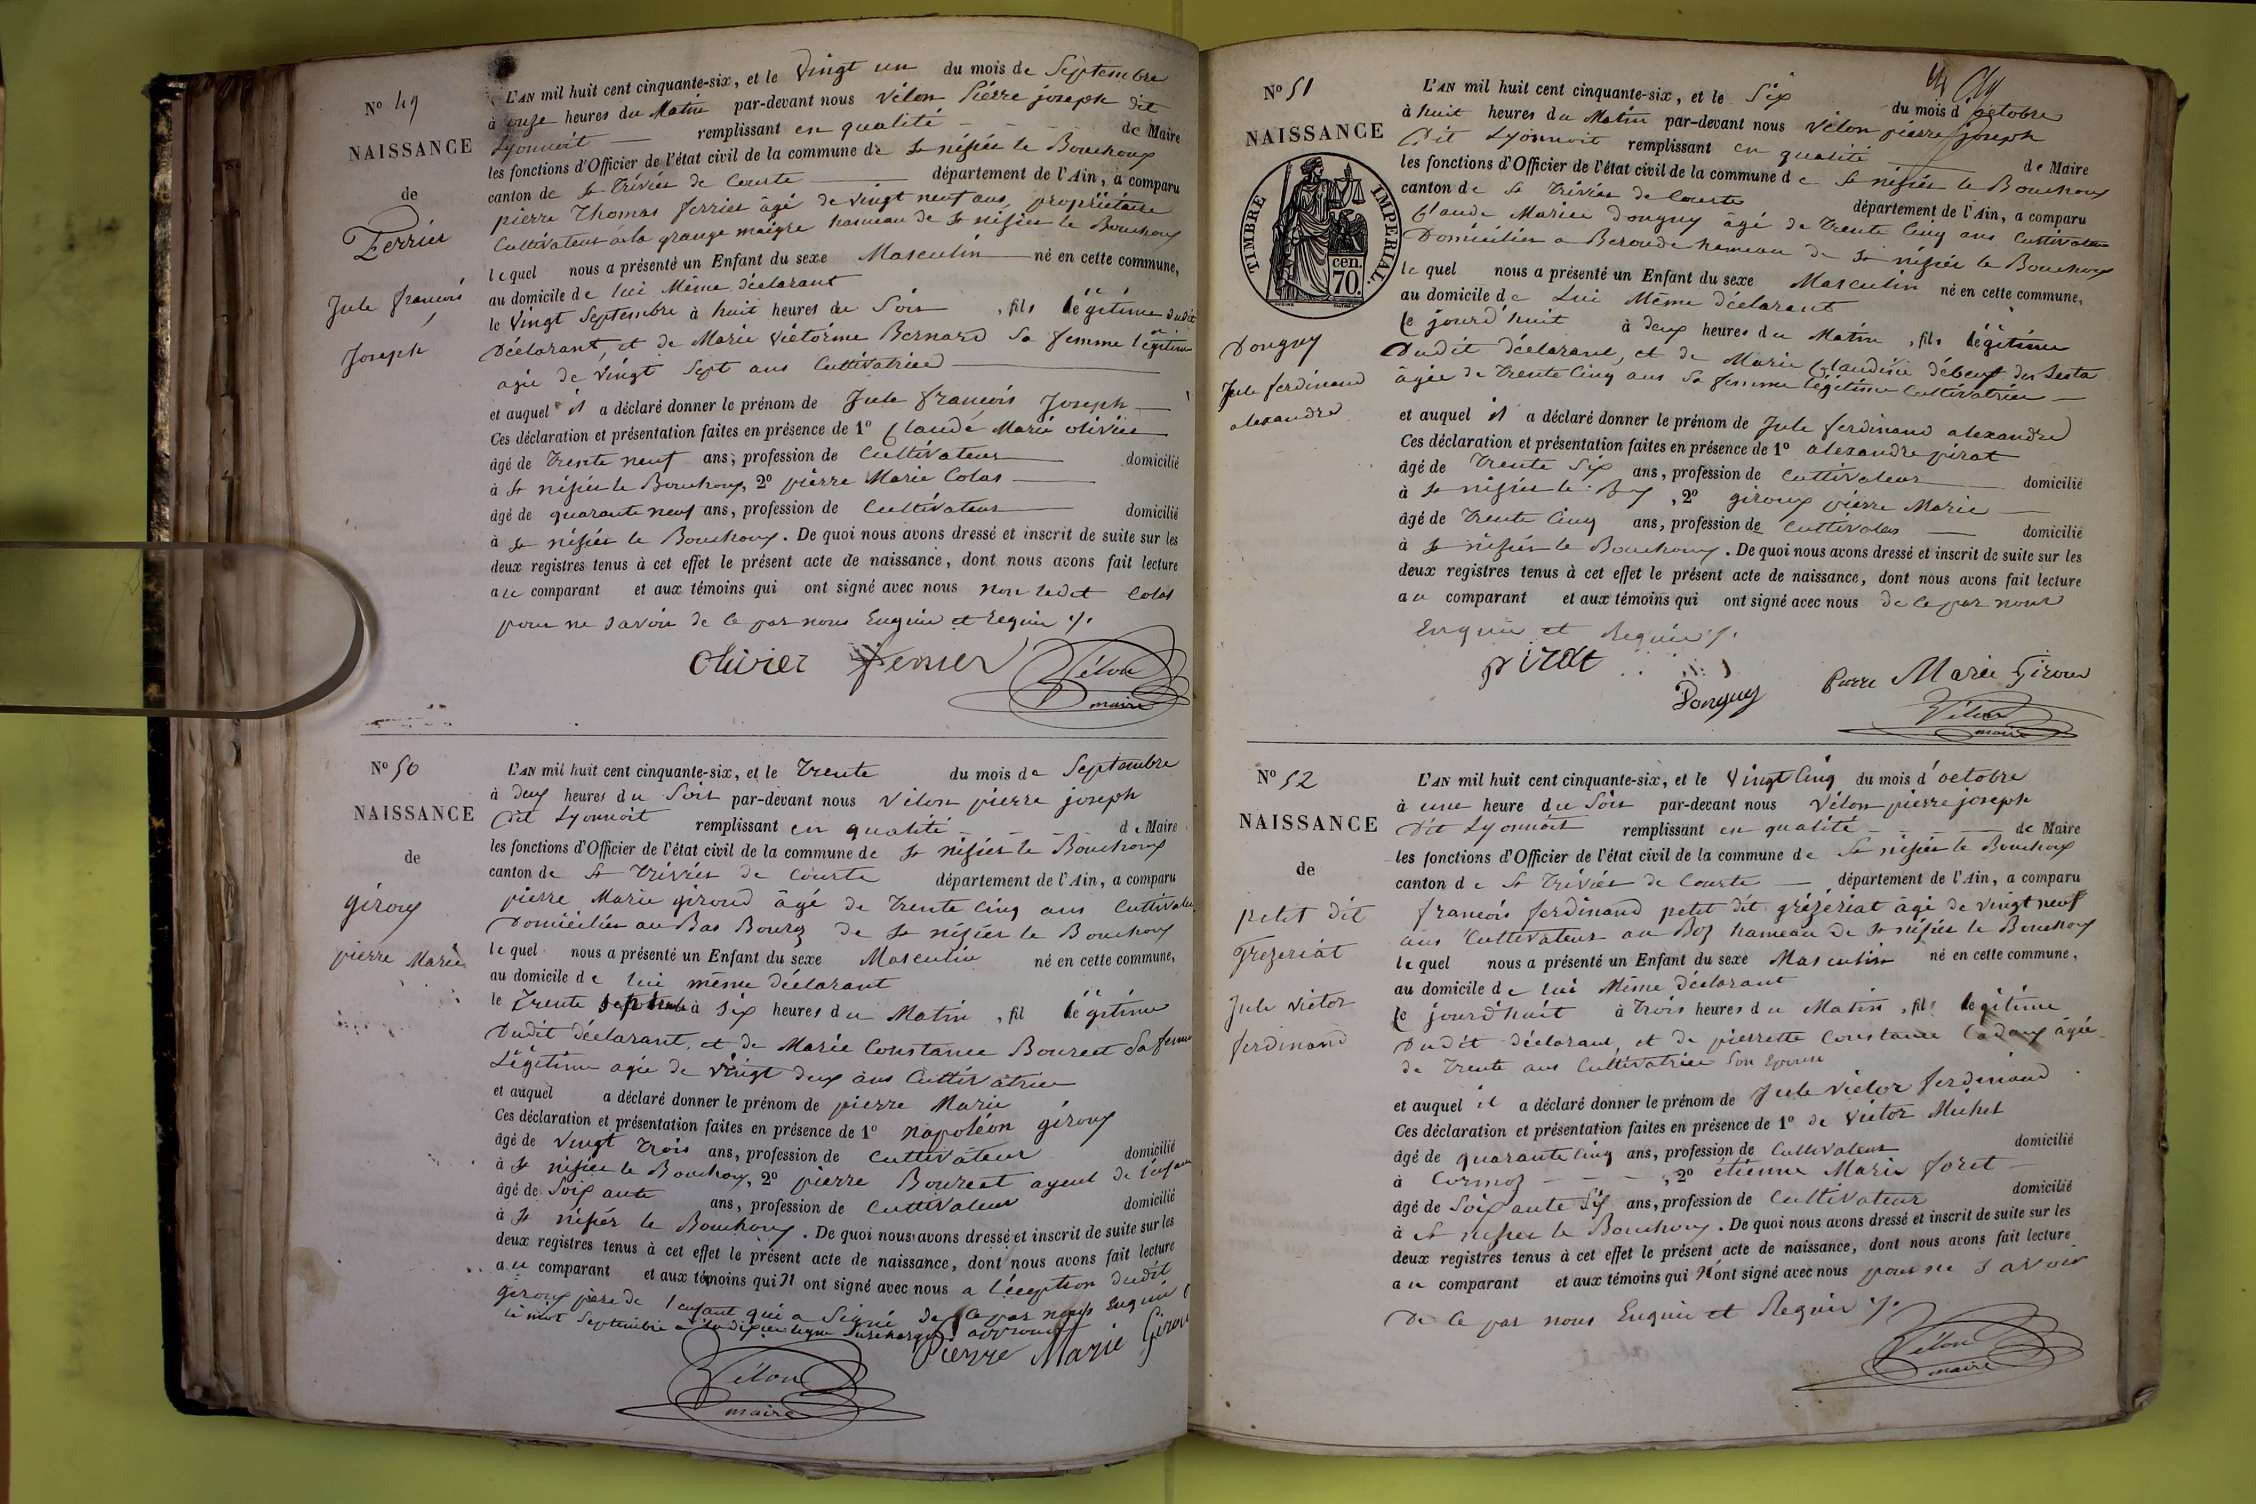 Nº 49
NAISSANCE
de
Ferrier
Jule francois
Joseph
L'AN mil huit cent cinquante-six, et le Vingt un du mois de Septembre
à onze heures du Matin par-devant nous Vélon Piérre joseph dit
Lyonnoit remplissant en qualité de Maire
les fonctions d'Officier de l'état civil de la commune de St nisier le Bouchoux
canton de St Trivier de Courte département de l'Ain, a comparu
pierre Thomas ferrier âgé de vingt neuf ans, propriétaire
Cultivateur à la grange maigre hameau de St nisier le Bouchoux
lequel nous a présenté un Enfant du sexe Masculin né en cette commune,
au domicile de lui Même déclarant
le Vingt Septembre à huit heures du Soir, fils légitime dudit
Déclarant, et de Marie Victorine Bernard Sa femme légitime
agée de vingt Sept ans Cultivatrice
et auquel il a déclaré donner le prénom de Jule francois Joseph
Ces déclaration et présentation faites en présence de 1º Claude Marie olivier
âgé de trente neuf ans, profession de Cultivateur domicilié
à St nisier le Bouchoux, 2º pierre Marie Colas
âgé de quarante neuf ans, profession de Cultivateur domicilié
à St nisier le Bouchoux. De quoi nous avons dressé et inscrit de suite sur les
deux registres tenus à cet effet le présent acte de naissance, dont nous avons fait lecture
au comparant et aux témoins qui ont signé avec nous non ledit Colas
pour ne savoir de ce par nous Enquie et Requie ./.
Olivier ferrier Vélon
maire
Nº 50
NAISSANCE
de
giroux
pierre Marie
L'AN mil huit cent cinquante-six, et le trente du mois de Septembre
à deux heures du Soir par-devant nous Vélon pierre joseph
Dit Lyonnoit remplissant en qualité de Maire
les fonctions d'Officier de l'état civil de la commune de St nisier le Bouchoux
canton de St Trivier de Courte département de l'Ain, a comparu
pierre Marie giroud âgé de trente Cinq ans Cultivateur
Domicilier au Bas Bourg de St nisier le Bouchoux
lequel nous a présenté un Enfant du sexe Masculin né en cette commune,
au domicile de lui même déclarant
le trente septembre à Six heures du Matin, fil légitime
Dudit déclarant, et de Marie Constance Boureet Sa femme
Légitime agée de vingt deux ans Cultivatrice
et auquel a déclaré donner le prénom de pierre Marie
Ces déclaration et présentation faites en présence de 1º napoléon giroux
âgé de vingt trois ans, profession de Cultivateur domicilié
à St nisier le Bouchoux, 2º pierre Boureet ayeul de l'enfant
âgé de Soixante ans, profession de Cultivateur domicilié
à St nisier le Bouchoux. De quoi nous avons dressé et inscrit de suite sur les
deux registres tenus à cet effet le présent acte de naissance, dont nous avons fait lecture
au comparant et aux témoins qui n'ont signé avec nous a l'éception dudit
giroux père de l'enfant qui a Signé de ce par nous Enquie
le mot Septembre a la dixième ligne Surchargé approuvé
Pierre Marie Giroud
Vélon
maire
Nº 51
NAISSANCE
TIMBRE IMPERIAL
70. cen.
Donguy
Jule ferdinand
alexandre
L'AN mil huit cent cinquante-six, et le Six du mois d'octobre
à huit heures du Matin par-devant nous Vélon pierre joseph
Dit Lyonnoit remplissant en qualité de Maire
les fonctions d'Officier de l'état civil de la commune de St nisier le Bouchoux
canton de St Trivier de Courte département de l'Ain, a comparu
Claude Marie Donguy âgé de trente Cinq ans Cultivateur
Domicilier a Beroude hameau de St nisier le Bouchoux
lequel nous a présenté un Enfant du sexe Masculin né en cette commune,
au domicile de Lui Même déclarant
le jourd'huit à deux heures du Matin, fils légitime
Dudit déclarant, et de Marie Claudine débeuf des Lesta
âgée de trente Cinq ans Sa femme légitime Cultivatrice
et auquel il a déclaré donner le prénom de Jule ferdinand alexandre
Ces déclaration et présentation faites en présence de 1º alexandre pirat
âgé de trente Six ans, profession de Cultivateur domicilié
à St nisier le B, 2º giroux pierre Marie
âgé de trente Cinq ans, profession de Cultivateur domicilié
à St nisier le Bouchoux. De quoi nous avons dressé et inscrit de suite sur les
deux registres tenus à cet effet le présent acte de naissance, dont nous avons fait lecture
au comparant et aux témoins qui ont signé avec nous de ce par nous
Enquie et Requie ./.
pirat Donguy Pierre Marie Giroud
Vélon
maire
Nº 52
NAISSANCE
de
petit dit
Grezeriat
Jule Victor
ferdinand
L'AN mil huit cent cinquante-six, et le Vingt Cinq du mois d'octobre
à une heure du Soir par-devant nous Vélon pierre joseph
Dit Lyonnoit remplissant en qualité de Maire
les fonctions d'Officier de l'état civil de la commune de St nisier le Bouchoux
canton de St Trivier de Courte département de l'Ain, a comparu
francois ferdinand petit dit grézeriat âgé de vingt neuf
ans Cultivateur au Boz hameau de St nisier le Bouchoux
lequel nous a présenté un Enfant du sexe Masculin né en cette commune,
au domicile de lui Même déclarant
le jourd'huit à trois heures du Matin, fils légitime
Dudit déclarant, et de pierrette Constance Cadoux âgée
de trente ans Cultivatrice Son Epouse
et auquel il a déclaré donner le prénom de Jule Victor ferdinand
Ces déclaration et présentation faites en présence de 1º de Victor Michel
âgé de quarante Cinq ans, profession de Cultivateur domicilié
à Cormoz, 2º étienne Marie foret
âgé de Soixante Six ans, profession de Cultivateur domicilié
à St nisier le Bouchoux. De quoi nous avons dressé et inscrit de suite sur les
deux registres tenus à cet effet le présent acte de naissance, dont nous avons fait lecture
au comparant et aux témoins qui n'ont signé avec nous pour ne Savoir
De ce par nous Enquie et Requie ./.
Vélon
maire